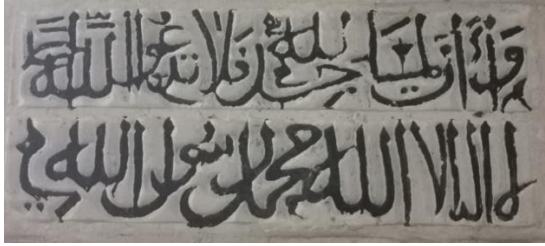 وأن المساجد لله فلا تدعوا مع الله أحدا
لا إله إلا الله محمد رسول الله